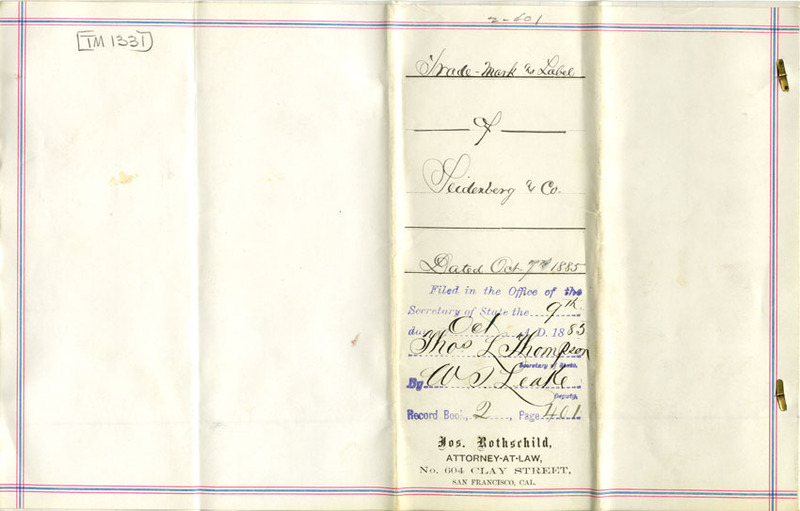 2-401
TM 1331
Trade-Mark & Label
of
Seidenberg & Co.
Dated Oct 7th 1885
Filed in the Office of the
Secretary of State the 9th
day Oct A.D. 1885
Thos L Thompson
Secretary of State.
By W S Leake
Deputy.
Record Book, 2, Page 401
Jos. Rothschild,
ATTORNEY-AT-LAW,
No. 604 CLAY STREET,
SAN FRANCISCO, CAL.